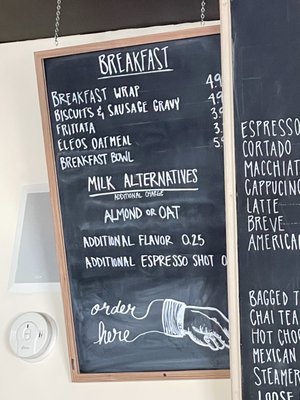 BREAKFAST
BREAKFAST WRAP 4.9
BISCUITS & SAUSAGE GRAVY 4.9
FRITTATA 3.
ELEOS OATMEAL 3.
BREAKFAST BOWL 5.
MILK ALTERNATIVES
ADDITIONAL CHARGE
ALMOND OR OAT
ADDITIONAL FLAVOR 0.25
ADDITIONAL ESPRESSO SHOT 0
order
here
ESPRESSO
CORTADO
MACCHIAT
CAPPUCINO
LATTE
BREVE
AMERICA
BAGGED T
CHAI TEA
HOT CHO
MEXICAN
STEAMER
LOOSE